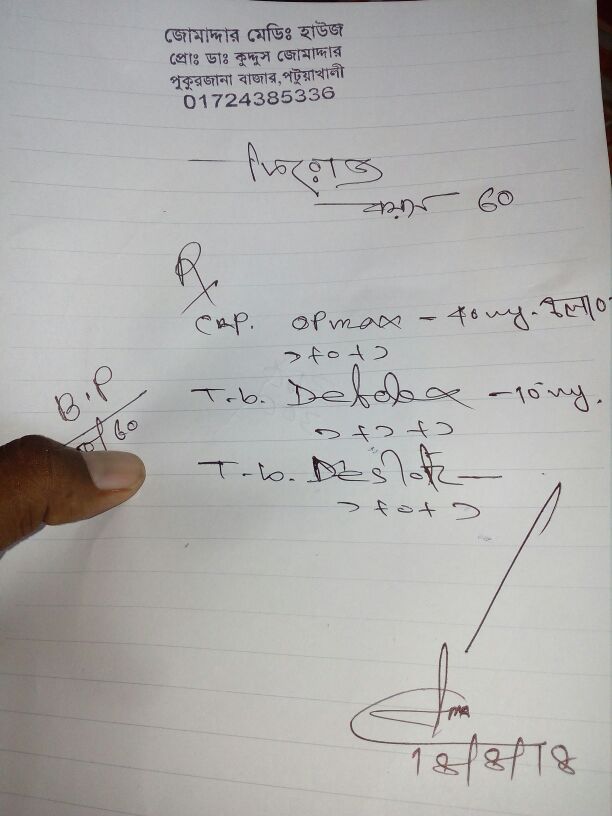 জোমাদ্দার মেডিঃ হাউজ
প্রোঃ ডাঃ কুদ্দুস জোমাদ্দার
পুকুরজানা বাজার,পটুয়াখালী
01724385336
ফিরোজ
বয়স 60
Rx
CAP. opmax - 40 mg.
১+০+১
B.P
60
T.b. - 10 mg.
১+১+১
T.b.
১+০+১